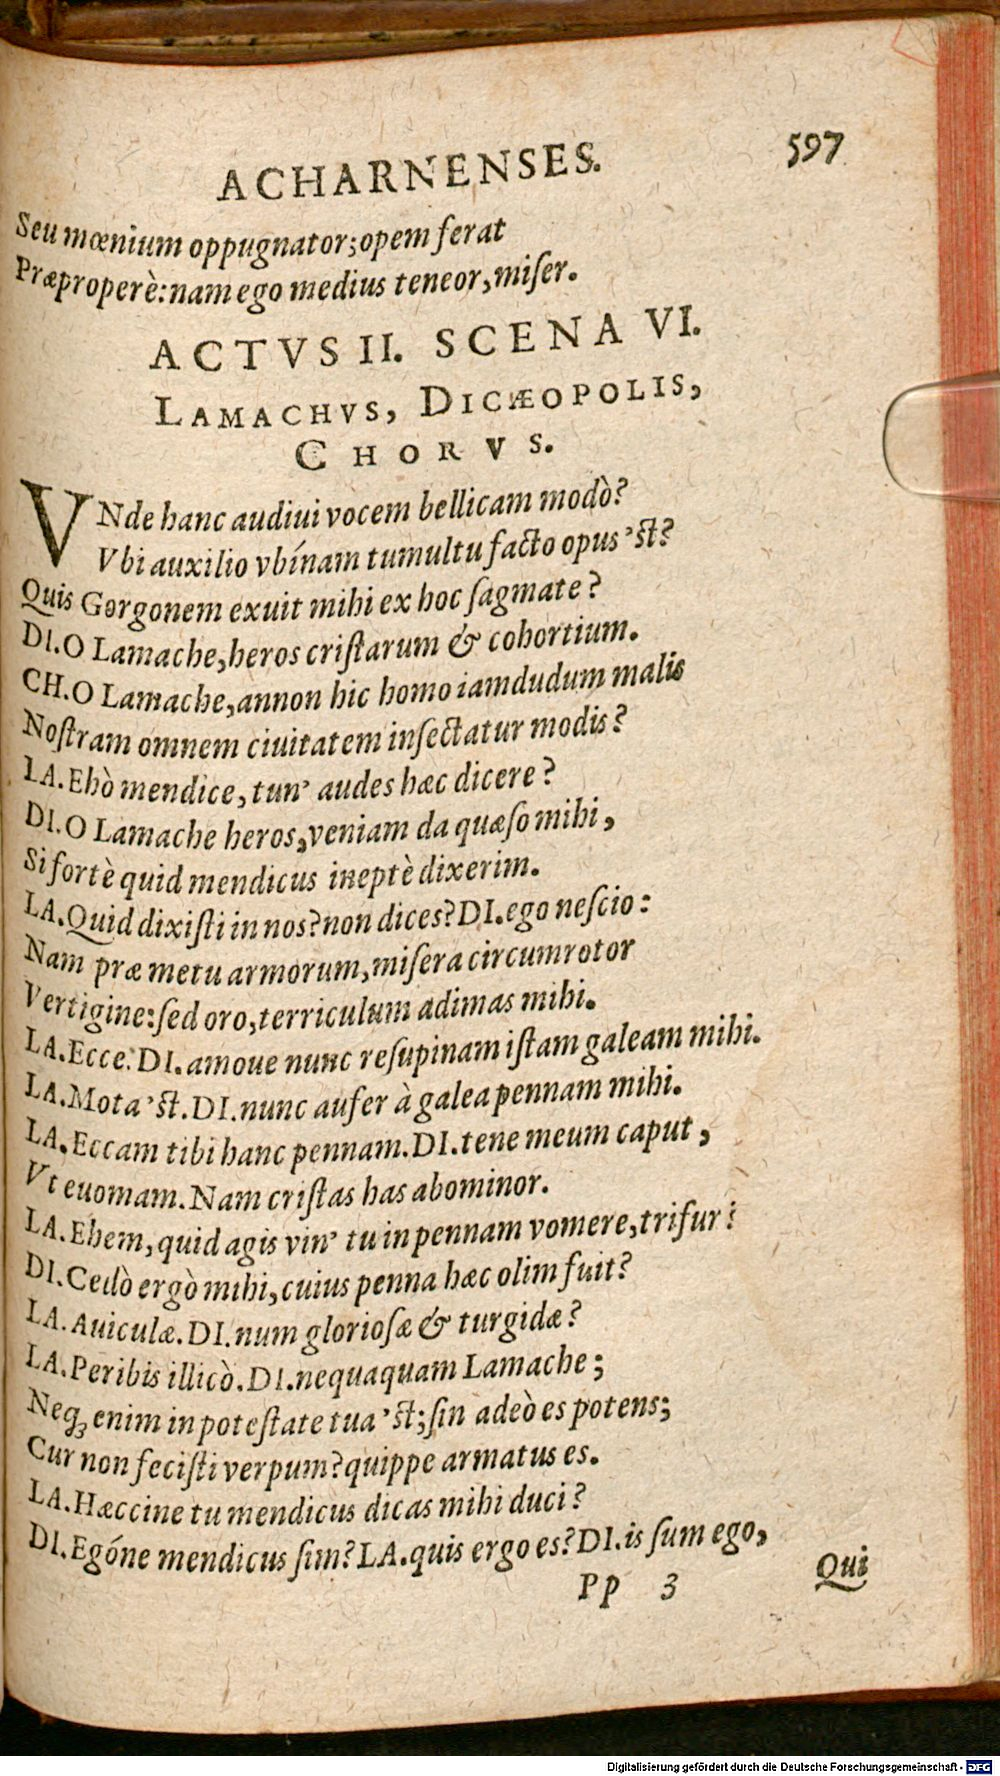 ACHARNENSES. 597
Seu mœnium oppugnator; opem ferat
Præproperè: nam ego medius teneor, miser.
ACTVS II. SCENA VI.
LAMACHVS, DICÆOPOLIS,
CHORVS.
VNde hanc audiui vocem bellicam modò?
Vbi auxilio vbínam tumultu facto opus 'st?
Quis Gorgonem exuit mihi ex hoc sagmate?
DI. O Lamache, heros cristarum & cohortium.
CH. O Lamache, annon hic homo iamdudum malis
Nostram omnem ciuitatem insectatur modis?
LA. Ehò mendice, tun' audes hæc dicere?
DI. O Lamache heros, veniam da quæso mihi,
Si fortè quid mendicus ineptè dixerim.
LA. Quid dixisti in nos? non dices? DI. ego nescio:
Nam præ metu armorum, misera circumrotor
Vertigine: sed oro, terriculum adimas mihi.
LA. Ecce. DI. amoue nunc resupinam istam galeam mihi.
LA. Mota 'st. DI. nunc aufer à galea pennam mihi.
LA. Eccam tibi hanc pennam. DI. tene meum caput,
Vt euomam. Nam cristas has abominor.
LA. Ehem, quid agis vin' tu in pennam vomere, trifur?
DI. Cedò ergò mihi, cuius penna hæc olim fuit?
LA. Auiculæ. DI. num gloriosæ & turgidæ?
LA. Peribis illicò. DI. nequaquam Lamache;
Neqꝫ enim in potestate tua 'st; sin adeò es potens;
Cur non fecisti verpum? quippe armatus es.
LA. Hæccine tu mendicus dicas mihi duci?
DI. Egóne mendicus sim? LA. quis ergo es? DI. is sum ego,
Pp 3 Qui
Digitalisierung gefördert durch die Deutsche Forschungsgemeinschaft - DFG